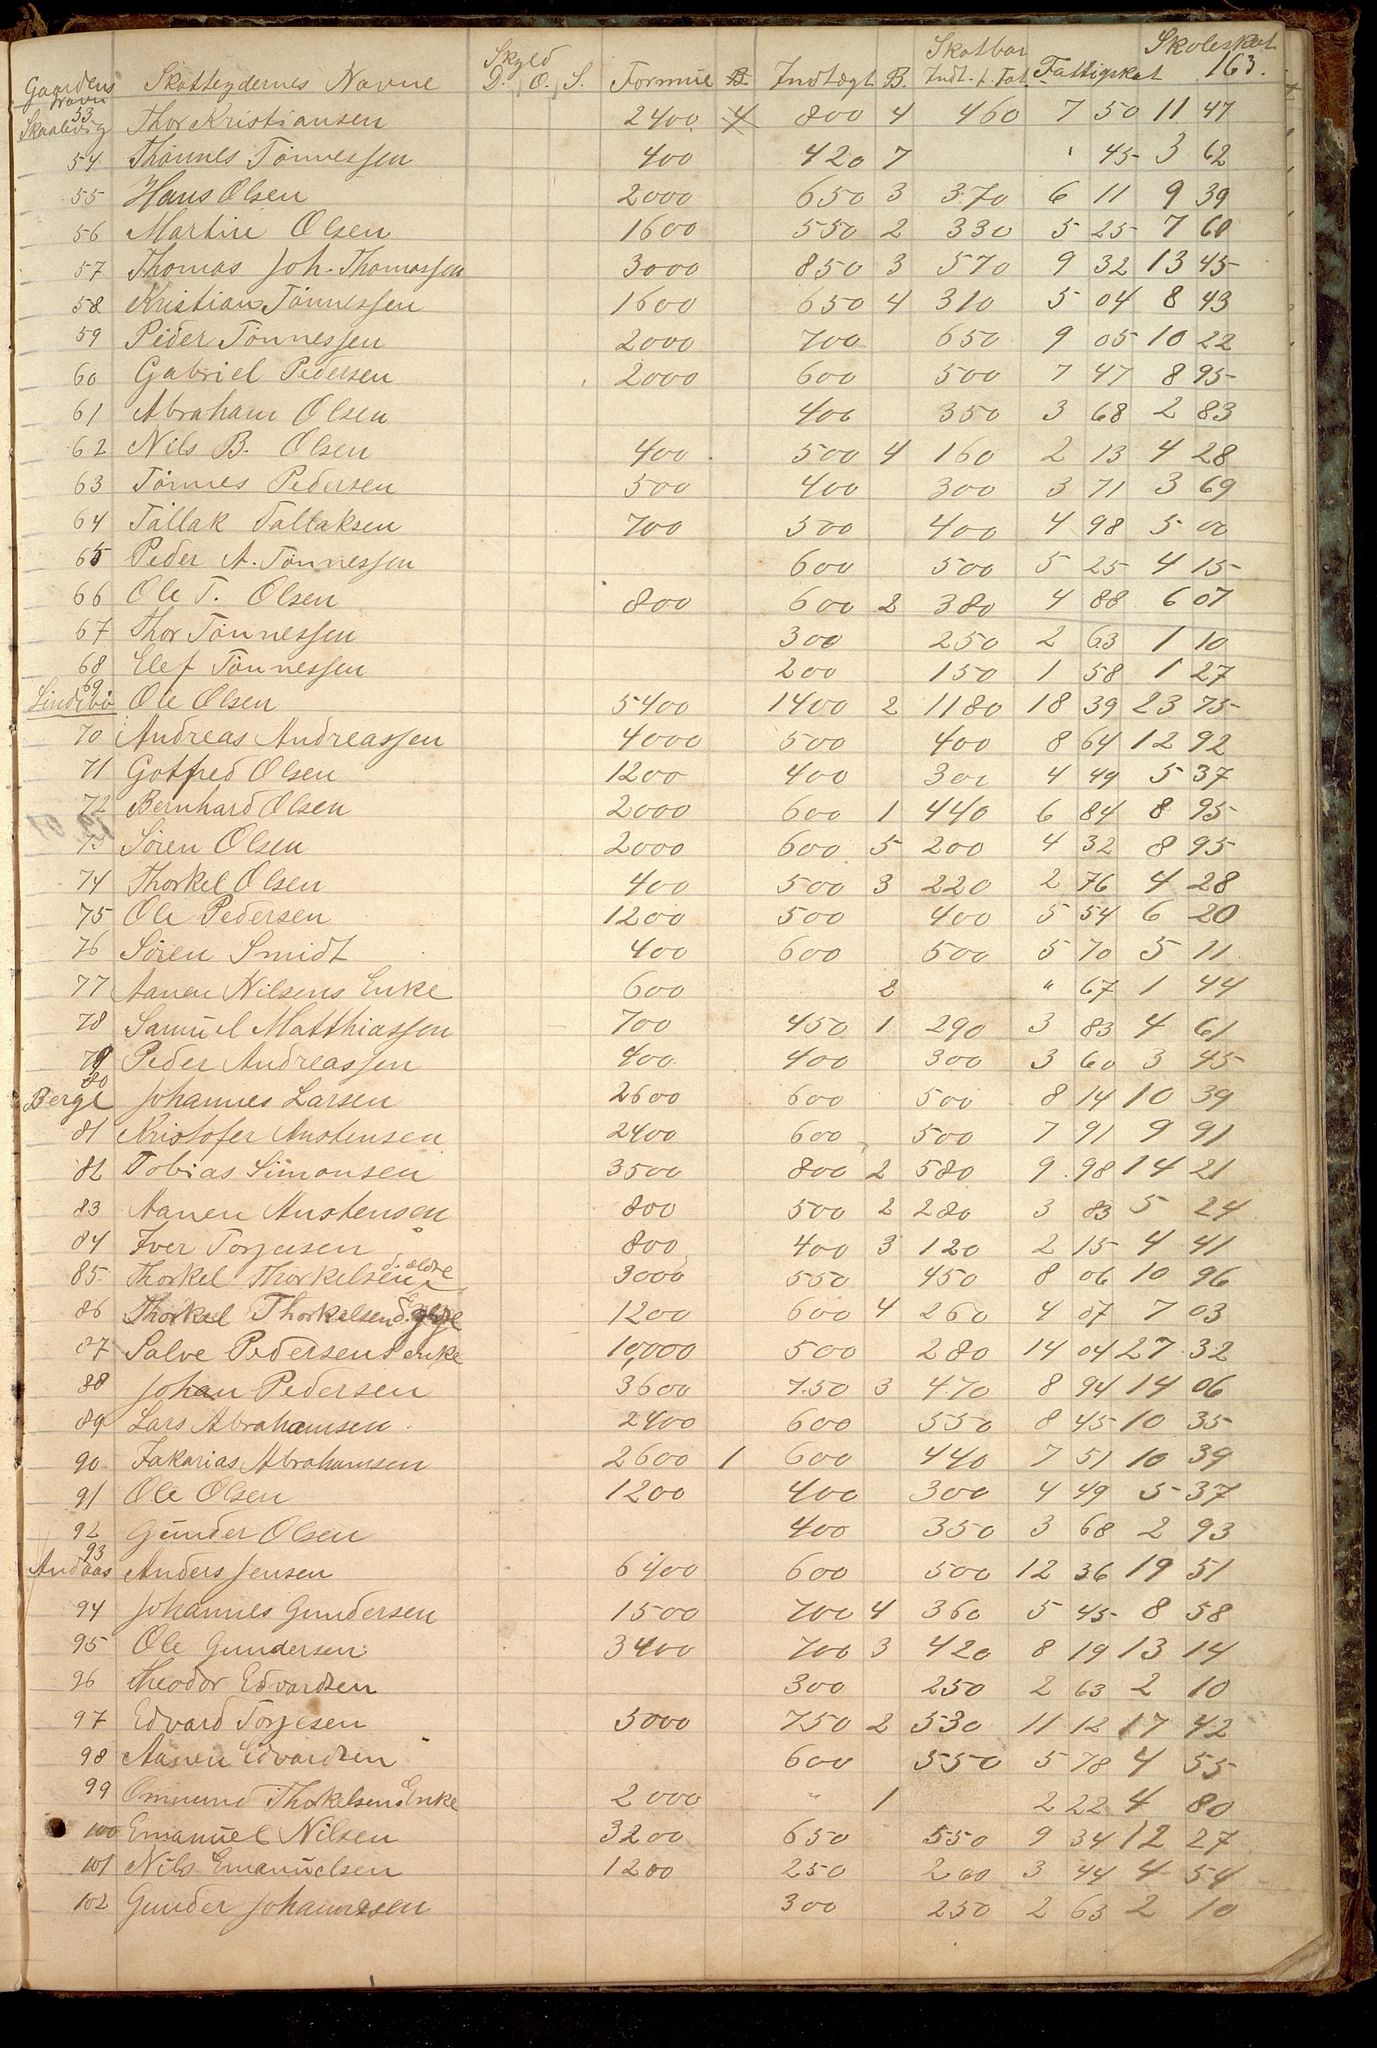 163.
Gaardens Navn Skatteydernes Navne Skyld D. O. S. Formue B. Indtægt B. Skatbar Indt. t. Fat. Fattigskat Skoleskat
Skaalevig 53 Thor Kristiansen 2400 4 800 4 460 7 50 11 47
54 Thönnes Tönnessen 400 420 7 " 45 3 62
55 Hans Olsen 2000 650 3 370 6 11 9 39
56 Martin Olsen 1600 550 2 330 5 25 7 60
57 Thomas Joh. Thomassen 3000 850 3 570 9 32 13 45
58 Kristian Tönnessen 1600 650 4 310 5 04 8 43
59 Peder Tönnessen 2000 700 650 9 05 10 22
60 Gabriel Pedersen 2000 600 500 7 47 8 95
61 Abraham Olsen 400 350 3 68 2 83
62 Nils B. Olsen 400 500 4 160 2 13 4 28
63 Tönnes Pedersen 500 400 300 3 71 3 69
64 Tallak Tallaksen 700 500 400 4 98 5 00
65 Peder A. Tönnessen 600 500 5 25 4 15
66 Ole T. Olsen 800 600 2 380 4 88 6 07
67 Thor Tönnessen 300 250 2 63 1 10
68 Elef Tönnessen 200 150 1 58 1 27
Lindebö 69 Ole Olsen 5400 1400 2 1180 18 39 23 75
70 Andreas Andreassen 4000 500 400 8 64 12 92
71 Gotfred Olsen 1200 400 300 4 49 5 37
72 Bernhard Olsen 2000 600 1 440 6 84 8 95
73 Sören Olsen 2000 600 5 200 4 32 8 95
74 Thorkel Olsen 400 500 3 220 2 76 4 28
75 Ole Pedersen 1200 500 400 5 54 6 20
76 Sören Smidt 400 600 500 5 70 5 11
77 Aanen Nilsens Enke 600 2 " 67 1 44
78 Samuel Matthiassen 700 450 1 290 3 83 4 61
79 Peder Andreassen 400 400 300 3 60 3 45
Berge 80 Johannes Larsen 2600 600 500 8 14 10 39
81 Kristofer Austensen 2400 600 500 7 91 9 91
82 Tobias Simonsen 3500 800 2 580 9 98 14 21
83 Aanen Austensen 800 500 2 280 3 83 5 24
84 Iver Torjesen 800 400 3 120 2 15 4 41
85 Thorkel Thorkelsen d. ældre 3000 550 450 8 06 10 96
86 Thorkel Thorkelsen d. yngre 1200 600 4 260 4 07 7 03
87 Salve Pedersens enke 10,000 500 280 14 04 27 32
88 Johan Pedersen 3600 750 3 470 8 94 14 06
89 Lars Abrahamsen 2400 600 550 8 45 10 35
90 Zakarias Abrahamsen 2600 1 600 440 7 51 10 39
91 Ole Olsen 1200 400 300 4 49 5 37
92 Gunder Olsen 400 350 3 68 2 93
Andaas 93 Anders Jensen 6400 600 500 12 36 19 51
94 Johannes Gundersen 1500 700 4 360 5 45 8 58
95 Ole Gundersen 3400 700 3 420 8 19 13 14
96 Theodor Edvardsen 300 250 2 63 2 10
97 Edvard Torjesen 5000 750 2 530 11 12 17 42
98 Aanen Edvardsen 600 550 5 78 4 55
99 Ommund Thorkelsens Enke 2000 " 1 2 22 4 80
100 Emanuel Nilsen 3200 650 550 9 34 12 27
101 Nils Emanuelsen 1200 250 200 3 44 4 54
102 Gunder Johannesen 300 250 2 63 2 10